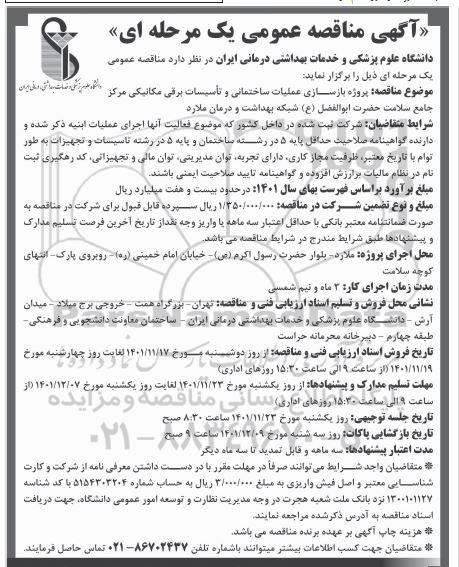 «آگهی مناقصه عمومی یک مرحله ای»
دانشگاه علوم پزشکی و خدمات بهداشتی درمانی ایران
دانشگاه علوم پزشکی و خدمات بهداشتی درمانی ایران در نظر دارد مناقصه عمومی
یک مرحله ای ذیل را برگزار نماید:
موضوع مناقصه: پروژه بازسازی عملیات ساختمانی و تأسیسات برقی مکانیکی مرکز
جامع سلامت حضرت ابوالفضل (ع) شبکه بهداشت و درمان ملارد
شرایط متقاضیان: شرکت ثبت شده در داخل کشور که موضوع فعالیت آنها اجرای عملیات ابنیه ذکر شده و
دارنده گواهینامه صلاحیت حداقل پایه ۵ در رشته ساختمان و پایه ۵ در رشته تاسیسات و تجهیزات به طور
توام با تاریخ معتبر، ظرفیت مجاز کاری، دارای تجربه، توان مدیریتی، توان مالی و تجهیزاتی، کد رهگیری ثبت
نام در نظام مالیات برارزش افزوده و گواهینامه تایید صلاحیت ایمنی باشند.
مبلغ برآورد براساس فهرست بهای سال ۱۴۰۱: درحدود بیست و هفت میلیارد ریال
مبلغ و نوع تضمین شرکت در مناقصه: ۱/۳۵۰/۰۰۰/۰۰۰ ریال سپرده قابل قبول برای شرکت در مناقصه به
صورت ضمانتنامه معتبر بانکی با حداقل اعتبار سه ماهه یا واریز وجه نقداز تاریخ آخرین فرصت تسلیم مدارک
و پیشنهادها طبق شرایط مندرج در شرایط مناقصه می باشد.
محل اجرای پروژه: ملارد- بلوار حضرت رسول اکرم (ص)- خیابان امام خمینی (ره)- روبروی پارک- انتهای
کوچه سلامت
مدت زمان اجرای کار: ۳ ماه و نیم شمسی
نشانی محل فروش و تسلیم اسناد ارزیابی فنی و مناقصه: تهران- بزرگراه همت - خروجی برج میلاد - میدان
آرش - دانشگاه علوم پزشکی و خدمات بهداشتی درمانی ایران - ساختمان معاونت دانشجویی و فرهنگی-
طبقه چهارم - دبیرخانه محرمانه حراست
تاریخ فروش اسناد ارزیابی فنی و مناقصه: از روز دوشنبه مورخ ۱۴۰۱/۱۱/۱۷ لغایت روز چهارشنبه مورخ
۱۴۰۱/۱۱/۱۹ (از ساعت ۹ الی ساعت ۱۵:۳۰ روزهای اداری)
مهلت تسلیم مدارک و پیشنهادها: از روز یکشنبه مورخ ۱۴۰۱/۱۱/۲۳ لغایت روز یکشنبه مورخ ۱۴۰۱/۱۲/۰۷ (از
ساعت ۹ الی ساعت ۱۵:۳۰ روزهای اداری)
تاریخ جلسه توجیهی: روز یکشنبه مورخ ۱۴۰۱/۱۱/۲۳ ساعت ۸:۳۰ صبح
تاریخ بازگشایی پاکات: روز سه شنبه مورخ ۱۴۰۱/۱۲/۰۹ ساعت ۹ صبح
مدت اعتبار پیشنهادها: سه ماهه و قابل تمدید تا سه ماه دیگر
* متقاضیان واجد شرایط می توانند صرفاً در مهلت مقرر با در دست داشتن معرفی نامه از شرکت و کارت
شناسایی معتبر و اصل فیش واریزی به مبلغ ۳/۰۰۰/۰۰۰ ریال به حساب شماره ۵۱۵۴۳۰۳۲۰۴ با کد شناسه
۱۳۰۰۱۰۱۱۲۷ نزد بانک ملت شعبه هجرت در وجه مدیریت نظارت و توسعه امور عمومی دانشگاه، جهت دریافت
اسناد مناقصه به آدرس ذکرشده مراجعه نمایند.
* هزینه چاپ آگهی بر عهده برنده مناقصه می باشد.
* متقاضیان جهت کسب اطلاعات بیشتر میتوانند باشماره تلفن ۸۶۷۰۲۴۳۷-۰۲۱ تماس حاصل فرمایند.